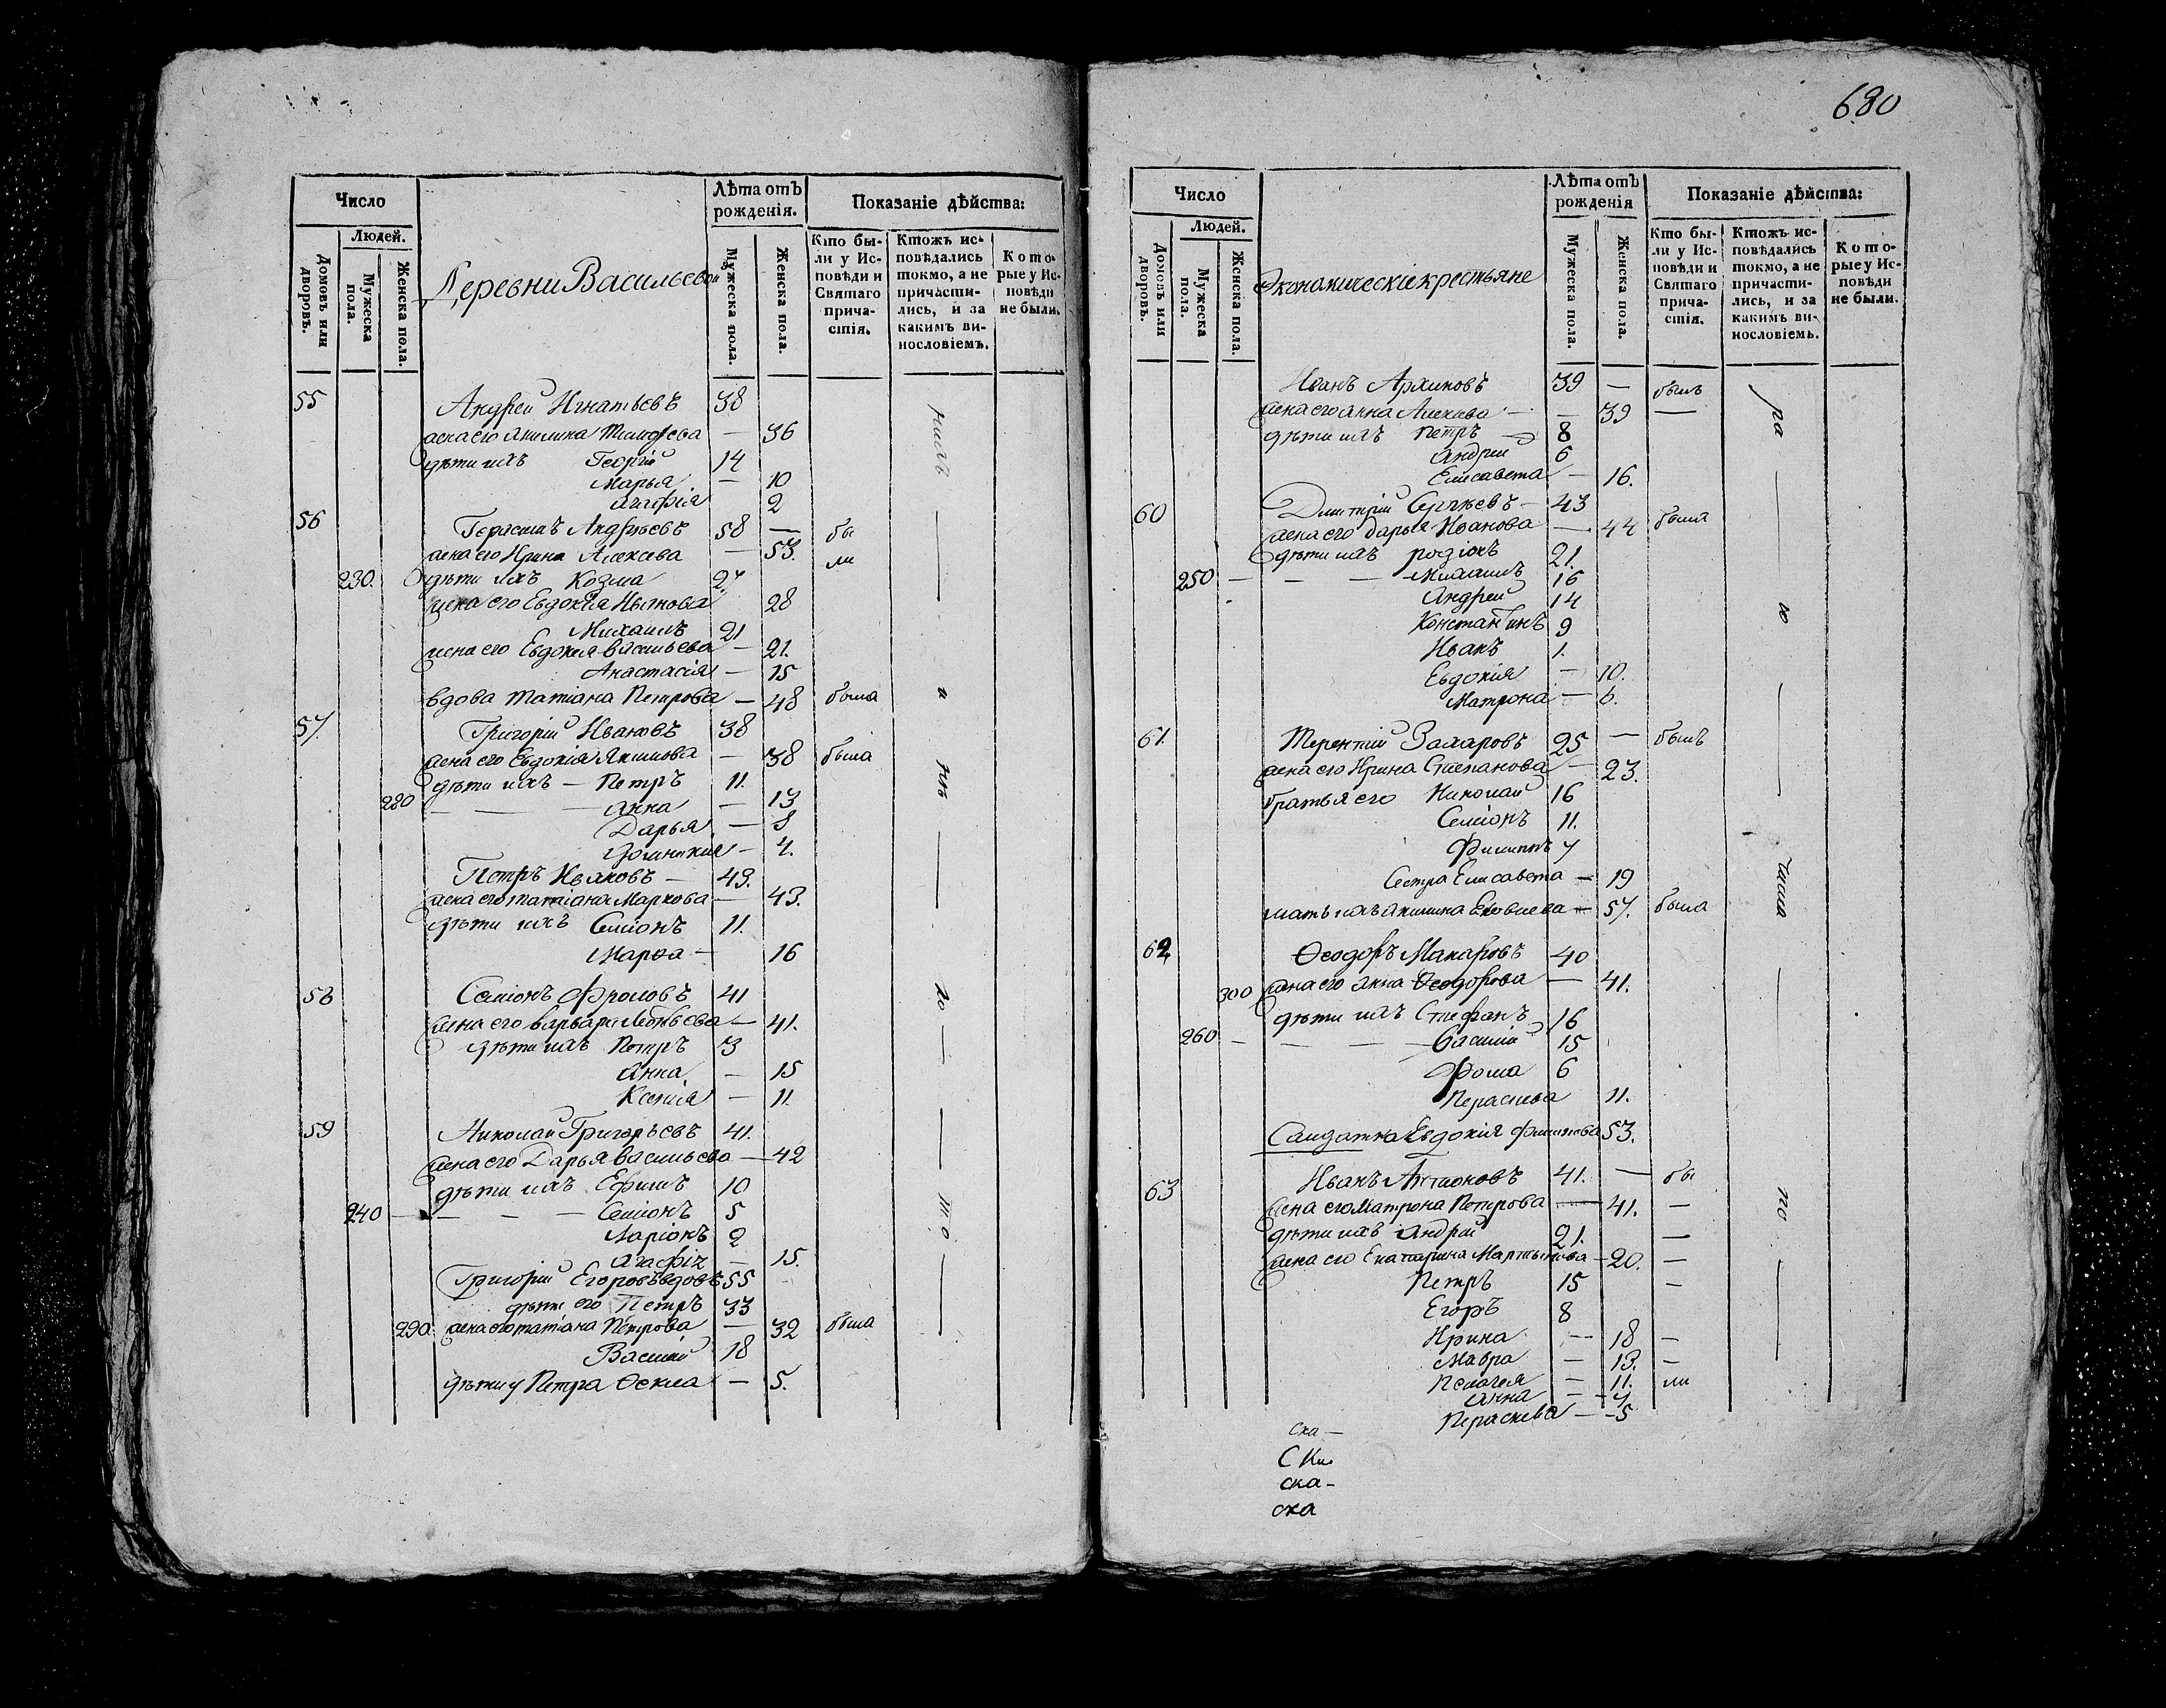 680
Число
Людей.
Домовъ или дворовъ.
Мужеска пола.
Женска пола.
Деревни Васильевой
Лѣта отъ рожденія.
Мужеска пола.
Женска пола.
Показаніе дѣйства:
Кто были у Исповѣди и Святаго причастія.
Ктожъ исповѣдались токмо, а не причастились, и за какимъ винословіемъ.
Которые у Исповѣди не были.
55 Андрей Игнатьевъ 38
жена его Акилина Тимофеева — 36
дѣти ихъ Георгій 14
Марья — 10
Агафія 2
56 Герасимъ Андрѣевъ 58 — бы
жена его Ирина Алексѣева — 53. ли
230. дѣти ихъ Козма 27
жена его Евдокія Иванова 28
Михаилъ 21
жена его Евдокія Васильева — 21.
Анастасія — 15
вдова Татіана Петрова — 48 была
57. Григорій Ивановъ 38
жена его Евдокія Якимова — 38 была
дѣти ихъ — Петръ 11.
280 — — Анна — 13
Дарья —
— 4.
Петръ Ивановъ — 43.
жена его Татіана Маркова — 43.
дѣти ихъ Семіонъ 11.
Марѳа — 16
58 Семіонъ Фроловъ 41
жена его Варвара Леонтьева — 41.
дѣти ихъ Петръ 3
Анна — 15
Ксенія — 11.
59 Николай Григорьевъ 41.
жена его Дарья Васильева — 42
дѣти ихъ Ефимъ 10
240 — — — Семіонъ 5
Ларіонъ 2
Агафія — 15.
Григорій Егоровъ вдовъ 55
дѣти его Петръ 33
290 жена его Татіана Петрова — 32 была
Василій 18
дѣти у Петра Ѳекла — 5.
Число
Людей.
Домовъ или дворовъ.
Мужеска пола.
Женска пола.
Экономическіе крестьяне
Лѣта отъ рожденія
Мужеска пола.
Женска пола.
Показаніе дѣйства:
Кто были у Исповѣди и Святаго причастія.
Ктожъ исповѣдались токмо, а не причастились, и за какимъ винословіемъ.
Которые у Исповѣди не были.
Иванъ Архиповъ 39 — былъ
жена его Анна Алексѣева — — 39 —
дѣти ихъ Петръ — 8
Андрей 6
Елисавета — 16.
60 Дмитрій Сергѣевъ — 43
жена его Дарья Иванова — 44 была
дѣти ихъ Родіонъ 21.
250 — — — Михаилъ 16
Андрей 14
Константинъ 9
Иванъ 1.
Евдокія — 10.
Матрона — 6.
61. Терентій Захаровъ 25 — былъ
жена его Ирина Степанова — 23.
братья его Николай 16
Семіонъ 11.
Филиппъ 7
Сестра Елисавета — 19
мать ихъ Акилина — 57. была
62 Ѳеодоръ Макаровъ 40
300 жена его Анна Ѳеодорова — 41.
дѣти ихъ Стефанъ 16
260 — — — Василій 15
Фома 6
Параскева 11.
Салдатка Евдокія Филипова 53.
63 Иванъ 41. — бы
жена его Матрона Петрова — 41. —
дѣти ихъ Андрей 21. —
жена его Екатерина Мартынова — 20. —
Петръ 15 —
Егоръ 8
Ирина — 18 —
Мавра — 13. —
Пелагея — 11. ли
Анна — 7
Параскева — 5
ска —
ска -
ска